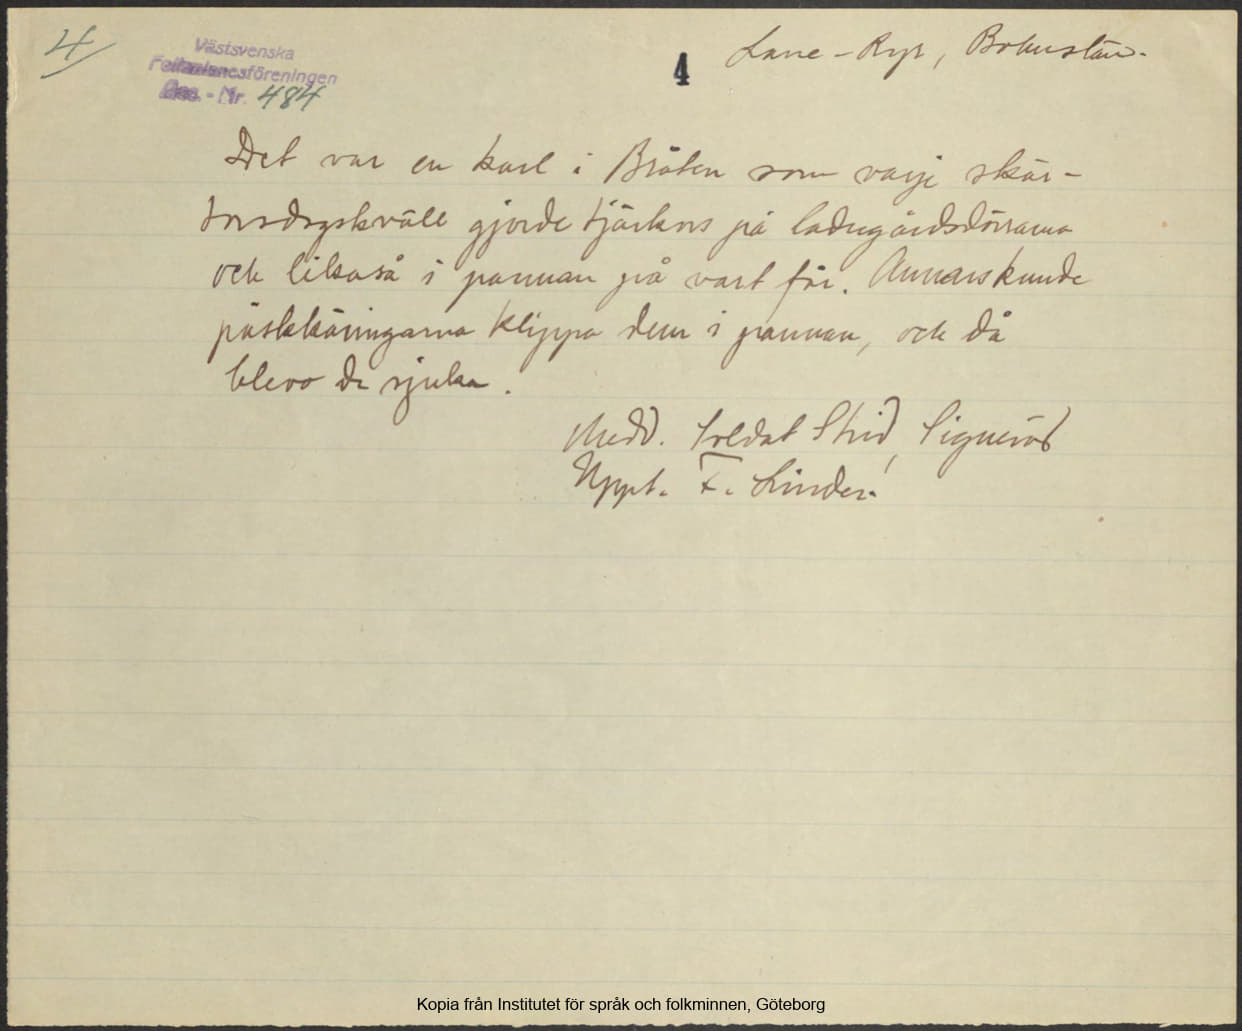 4
Västsvenska
Folkminnesföreningen
Acc. - Nr. 484
4
Lane-Ryr, Bohuslän.
Det var en karl i Bråten som varje skär-
torsdagskväll gjorde tjärkors på ladugårdsdörrarna
och likaså i pannan på vart får. Annars kunde
påskkäringarna klippa dem i pannan, och då
blevo de sjuka.
Medd. Soldat Strid,
Uppt. F. Linder.
Kopia från Institutet för språk och folkminnen, Göteborg